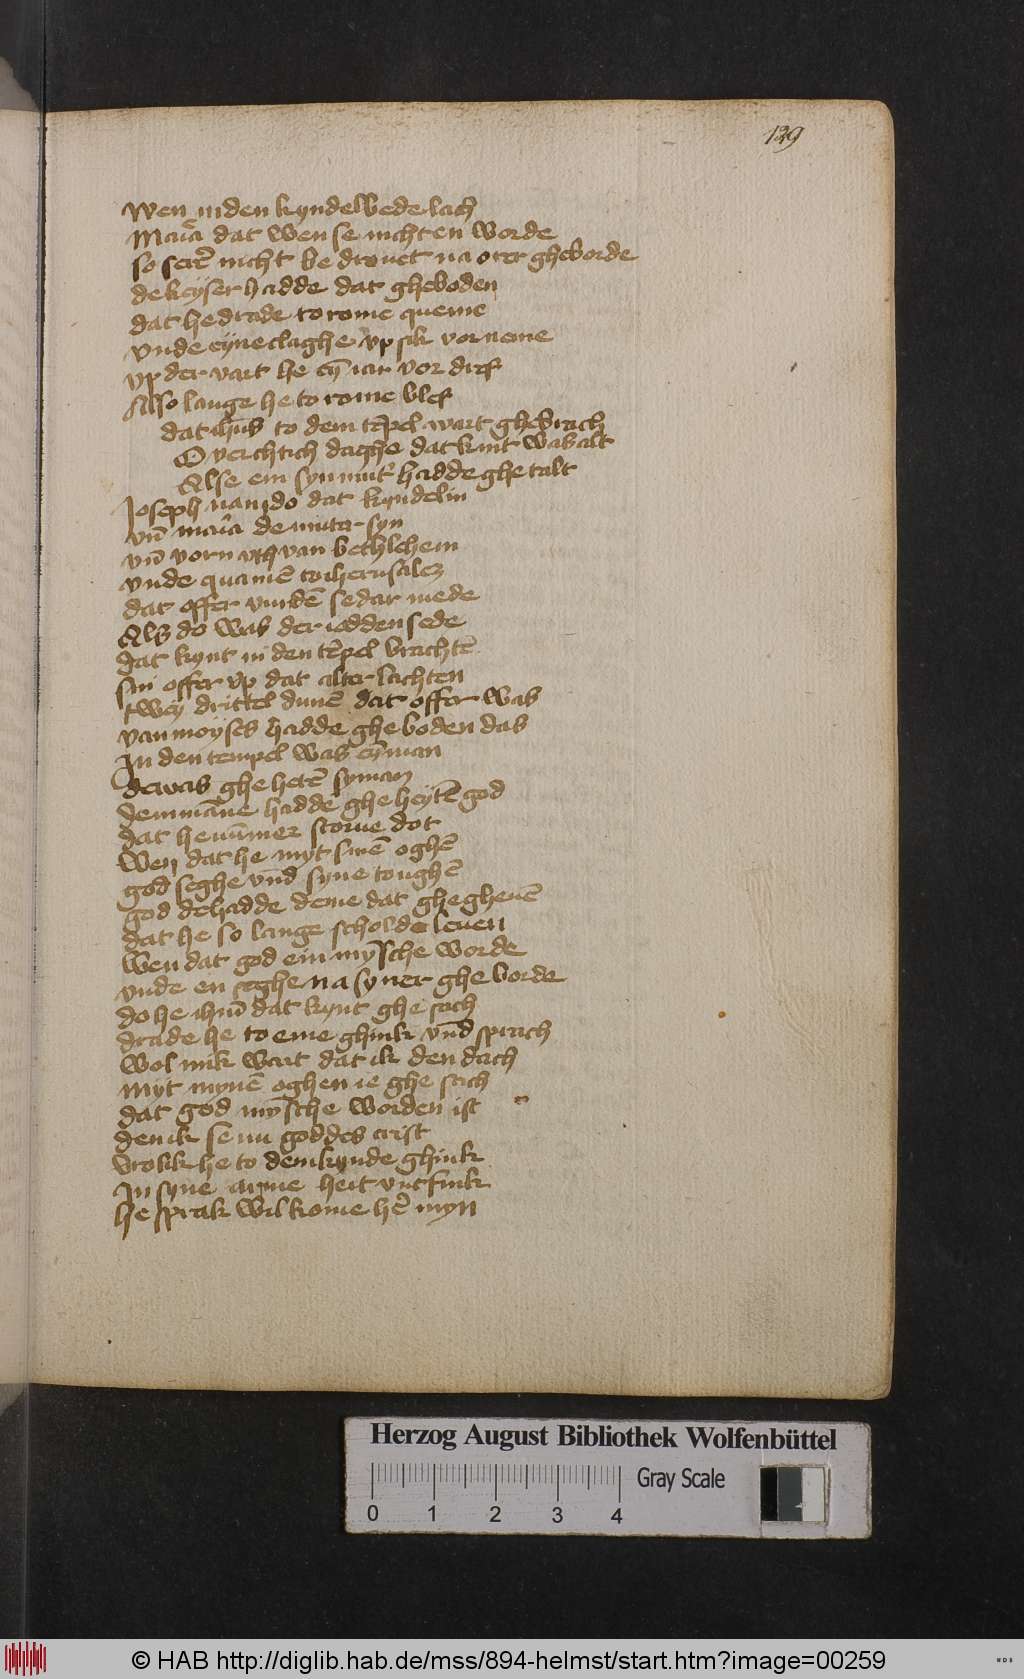 129
Wen in den kyndelbede lach
Maria dat wen se nicht en worde
so sere nicht bedrouet na orer gheborde
de keyser hadde dat gheboden
dat he drade to rome queme
vnde eyne claghe vp sik vorneme
vp der vart he eyn iar vor dref
Also lange he to rome blef
dat ihūs to dem tēpel wart ghebrach
O verthich daghe dat kint was alt
Alse em symmit hadde ghetalt
Joseph nam do dat kyndelin
vn̄ maria de muter syn
vn̄ vorn van bethlehem
vnde quamē to iherusalem
dat offer vurdē se dar mede
Als do was der iodden sede
dat kynt in den tēpel brachtē
sin offer vp dat alter lachten
twey drittel duuē dat offer was
van moyses hadde gheboden das
In den tempel was eyn man
de was ghehetē syman
dem māne hadde gheheytē god
dat he nūmer storue dot
wen dat he myt sinē oghē
god seghe vnd syne toughē
god de hadde deme dat ghegheuē
dat he so lange scholde leuen
wen dat god ein mȳsche worde
vnde en seghe na syner gheborde
do he ihm̄ dat kynt ghesach
drade he to eme ghink vnd sprach
wol mik wart dat ik den dach
myt mynē oghen ie ghesach
dat god mȳsche worden ist
den ik se nu goddes crist
vrolik he to dem kynde ghink
In syne arme heit vntfink
he sprak wilkome hēr myn
Herzog August Bibliothek Wolfenbüttel
Gray Scale
0 1 2 3 4
© HAB http://diglib.hab.de/mss/894-helmst/start.htm?image=00259